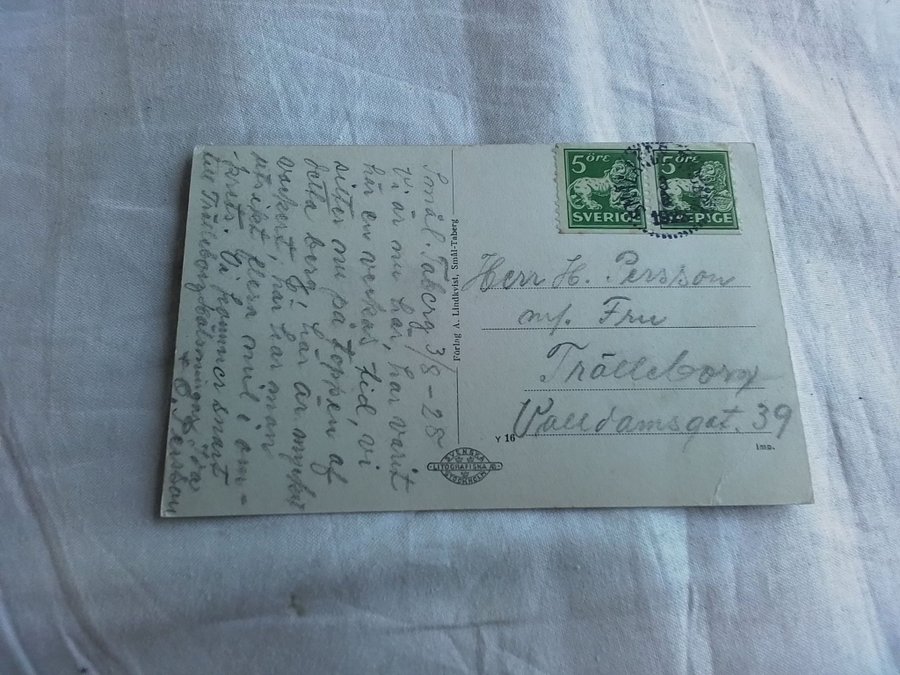 Smål. Taberg 3/8-28
Vi är nu här, har varit
här en veckas tid, vi
sitter nu på toppen af
detta berg. här är mycket
vackert, här har man
utsikt flera mil i om-
krets. Vi kommer snart
till Trälleborg. Hälsningar
Persson
Förlag A. Lindkvist, Smål-Taberg
5 ÖRE
SVERIGE
5 ÖRE
SVERIGE
Herr H. Persson
m/ Fru
Trälleborg
Valldamsgat. 39
Y 16
Imp.
SVENSKA
LITOGRAFISKA AB
STOCKHOLM